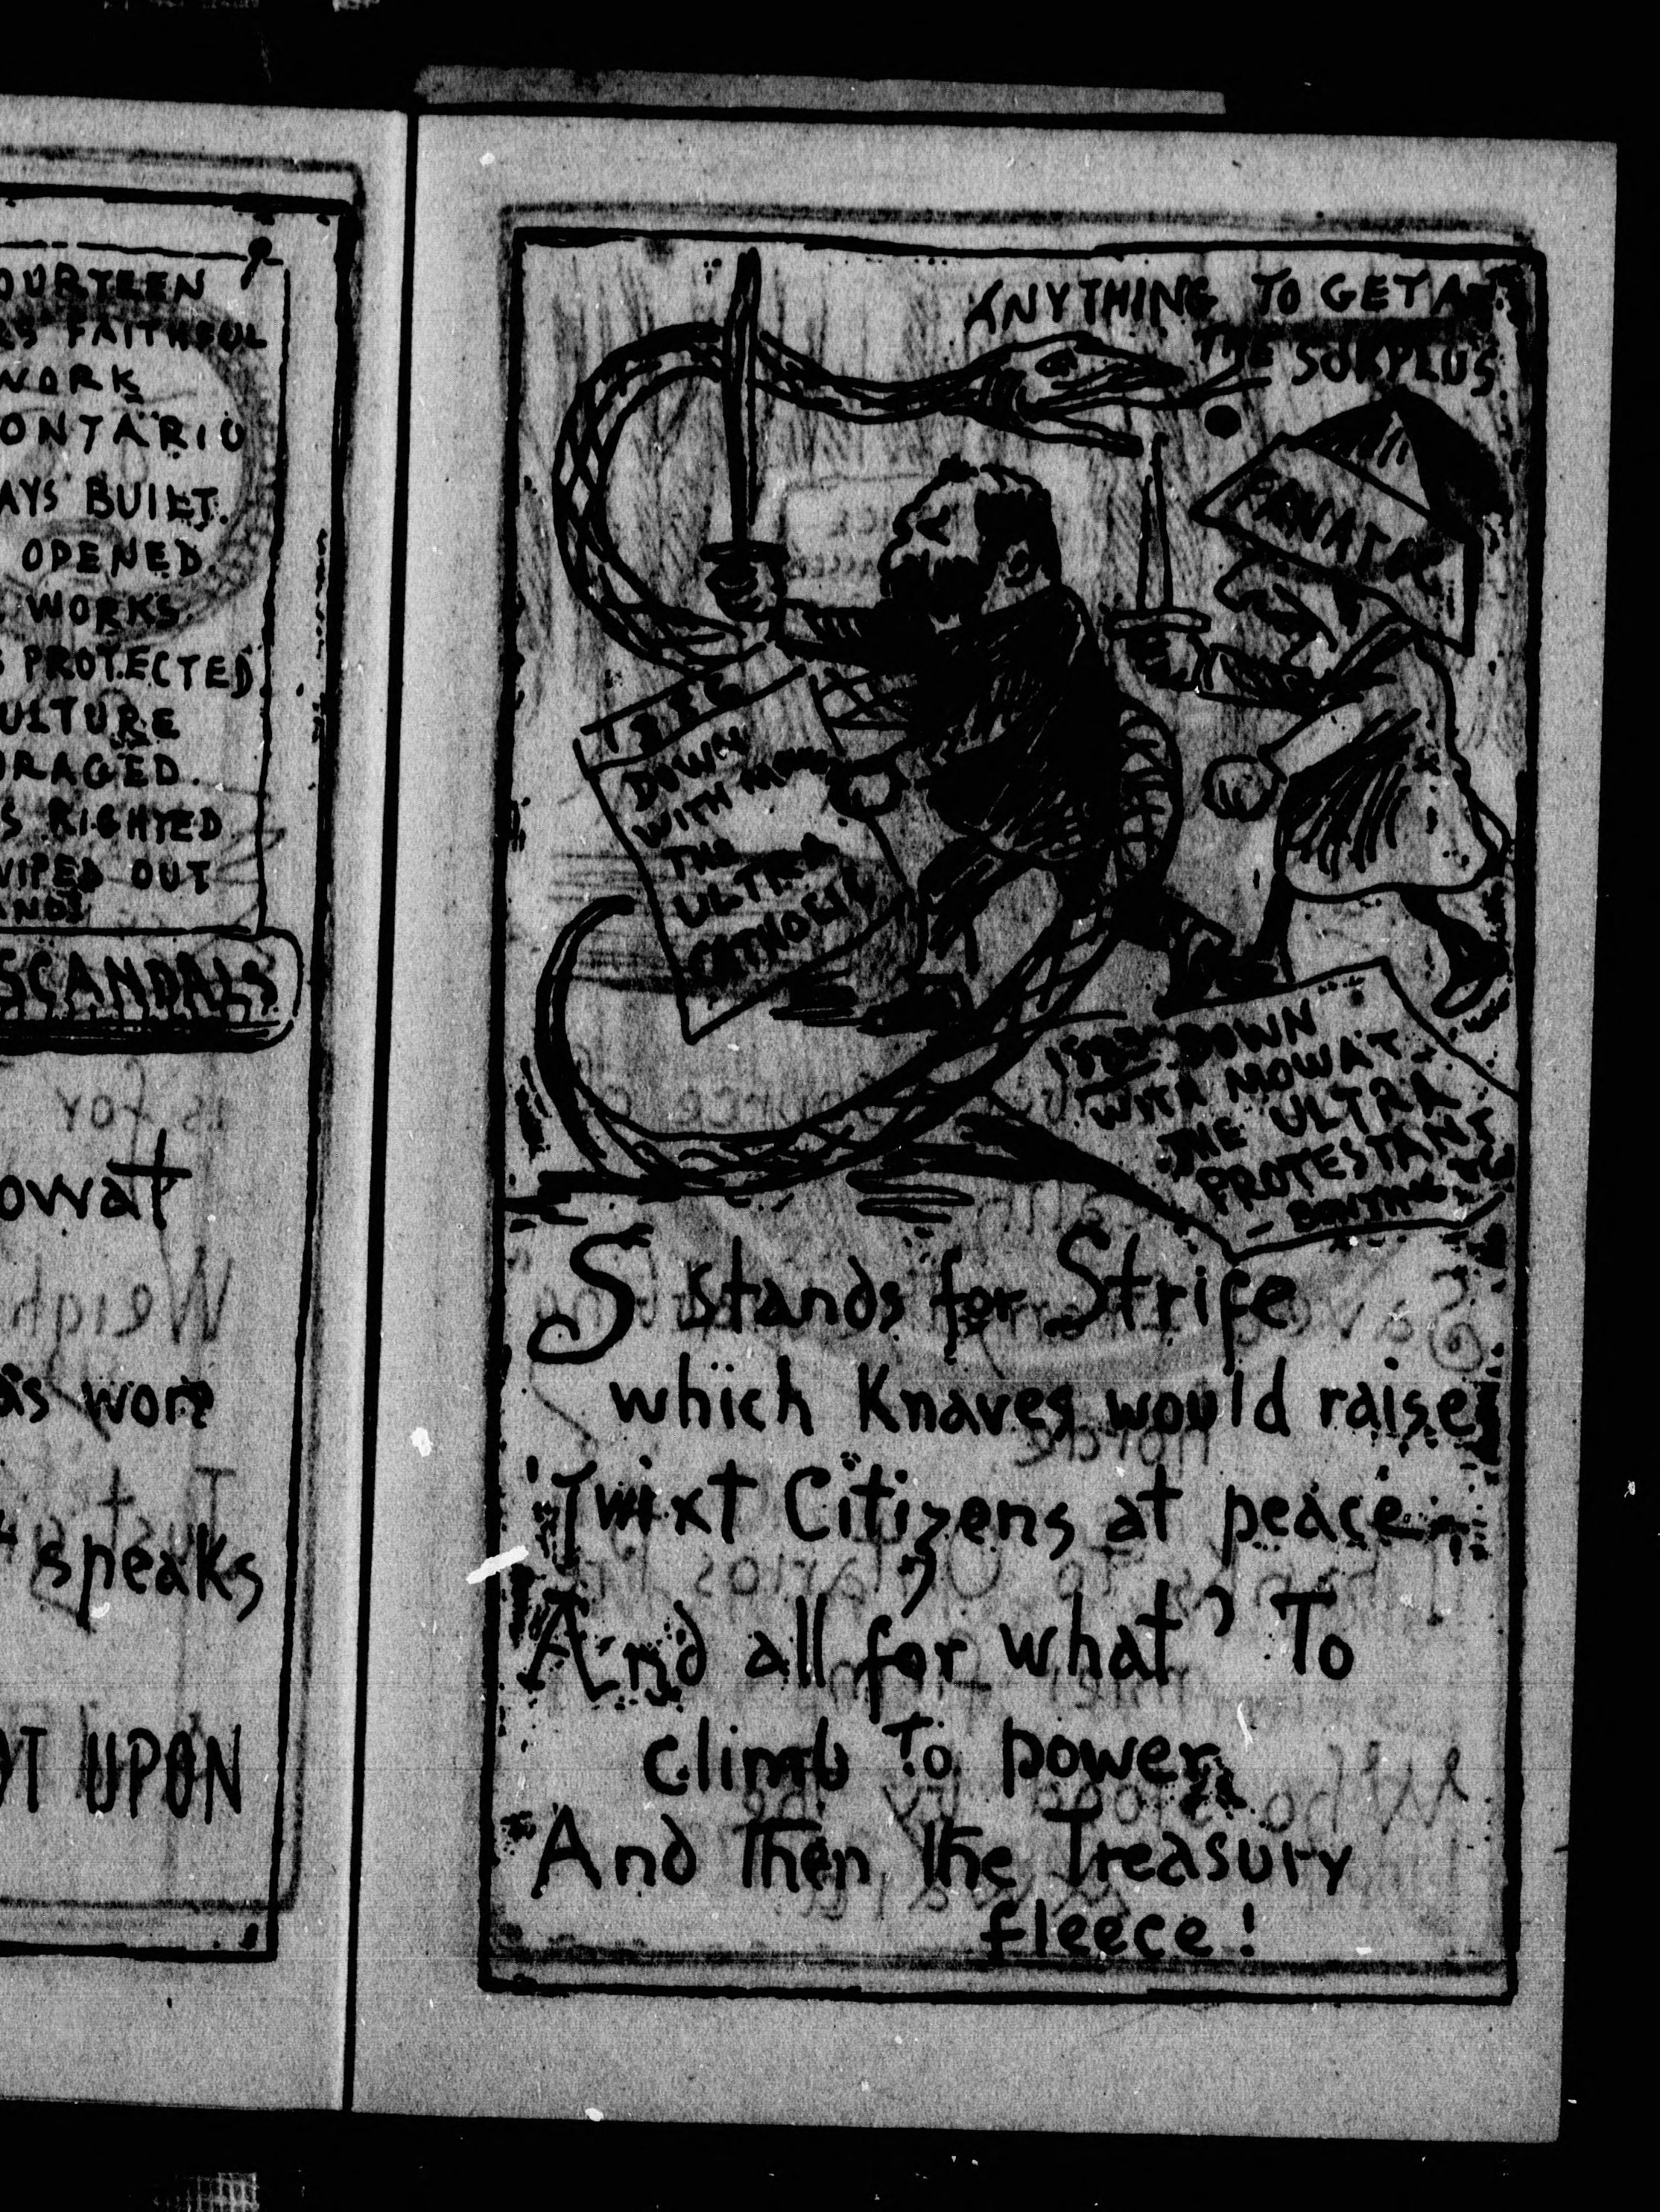 OURTEEN
RS FAITHFUL
WORK
ONTARIO
AYS BUILT.
OPENED.
WORKS.
S PROTECTED
ULTURE
ORAGED.
S RIGHTED
WIPED OUT
ANDS
SCANDALS
owat
as won
speaks
OT UPON
ANYTHING TO GET AT
THE SURPLUS
FANATIC
1886
DOWN
WITH MOWAT
THE
ULTRA
CATHOLIC
1883 DOWN
WITH MOWAT
THE ULTRA
PROTESTANT
S stands for Strife
which Knaves would raise
'Twixt Citizens at peace
And all for what? To
climb to power
And then the Treasury
fleece!